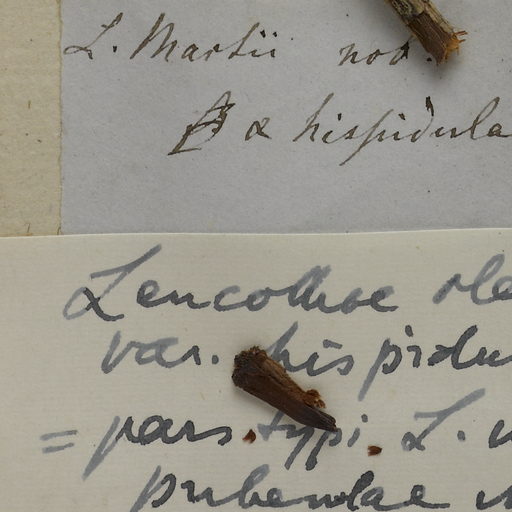 L. Martii nov.
α hispidula
Leucothoe ole
var. hispidu
= pars typi L.
pubenlae